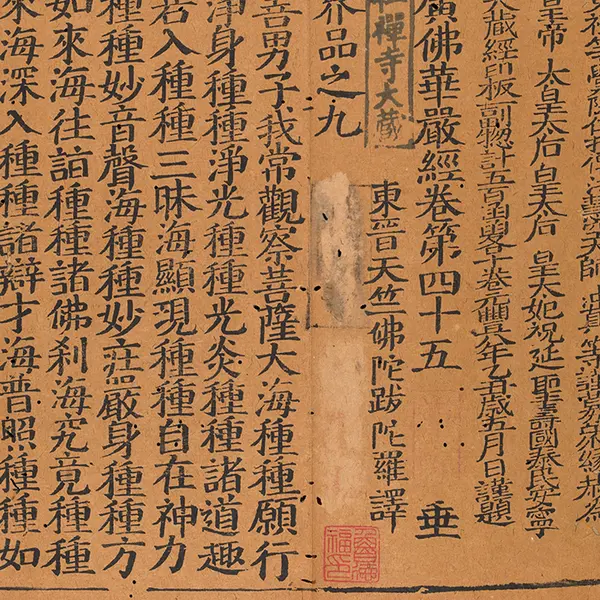 住持傳法慧空大師 沖真等謹募衆緣恭爲
皇帝 太皇太后 皇太后 皇太妃祝延聖壽國泰民安寧
大藏經印板一副揔計五百函函各十卷元豐八年乙丑歲五月日謹題
廣佛華嚴經卷第四十五 垂
東晉天竺佛陀跋陀羅譯
禪寺大藏
界品之九
善男子我常觀察菩薩大海種種願行
淨身種種淨光種種光炎種種諸道趣
若入種種三昧海顯現種種自在神力
種種妙音聲海種種妙莊嚴身種種方
如來海往詣種種諸佛刹海究竟種種
來海深入種種諸辯才海普照種種如